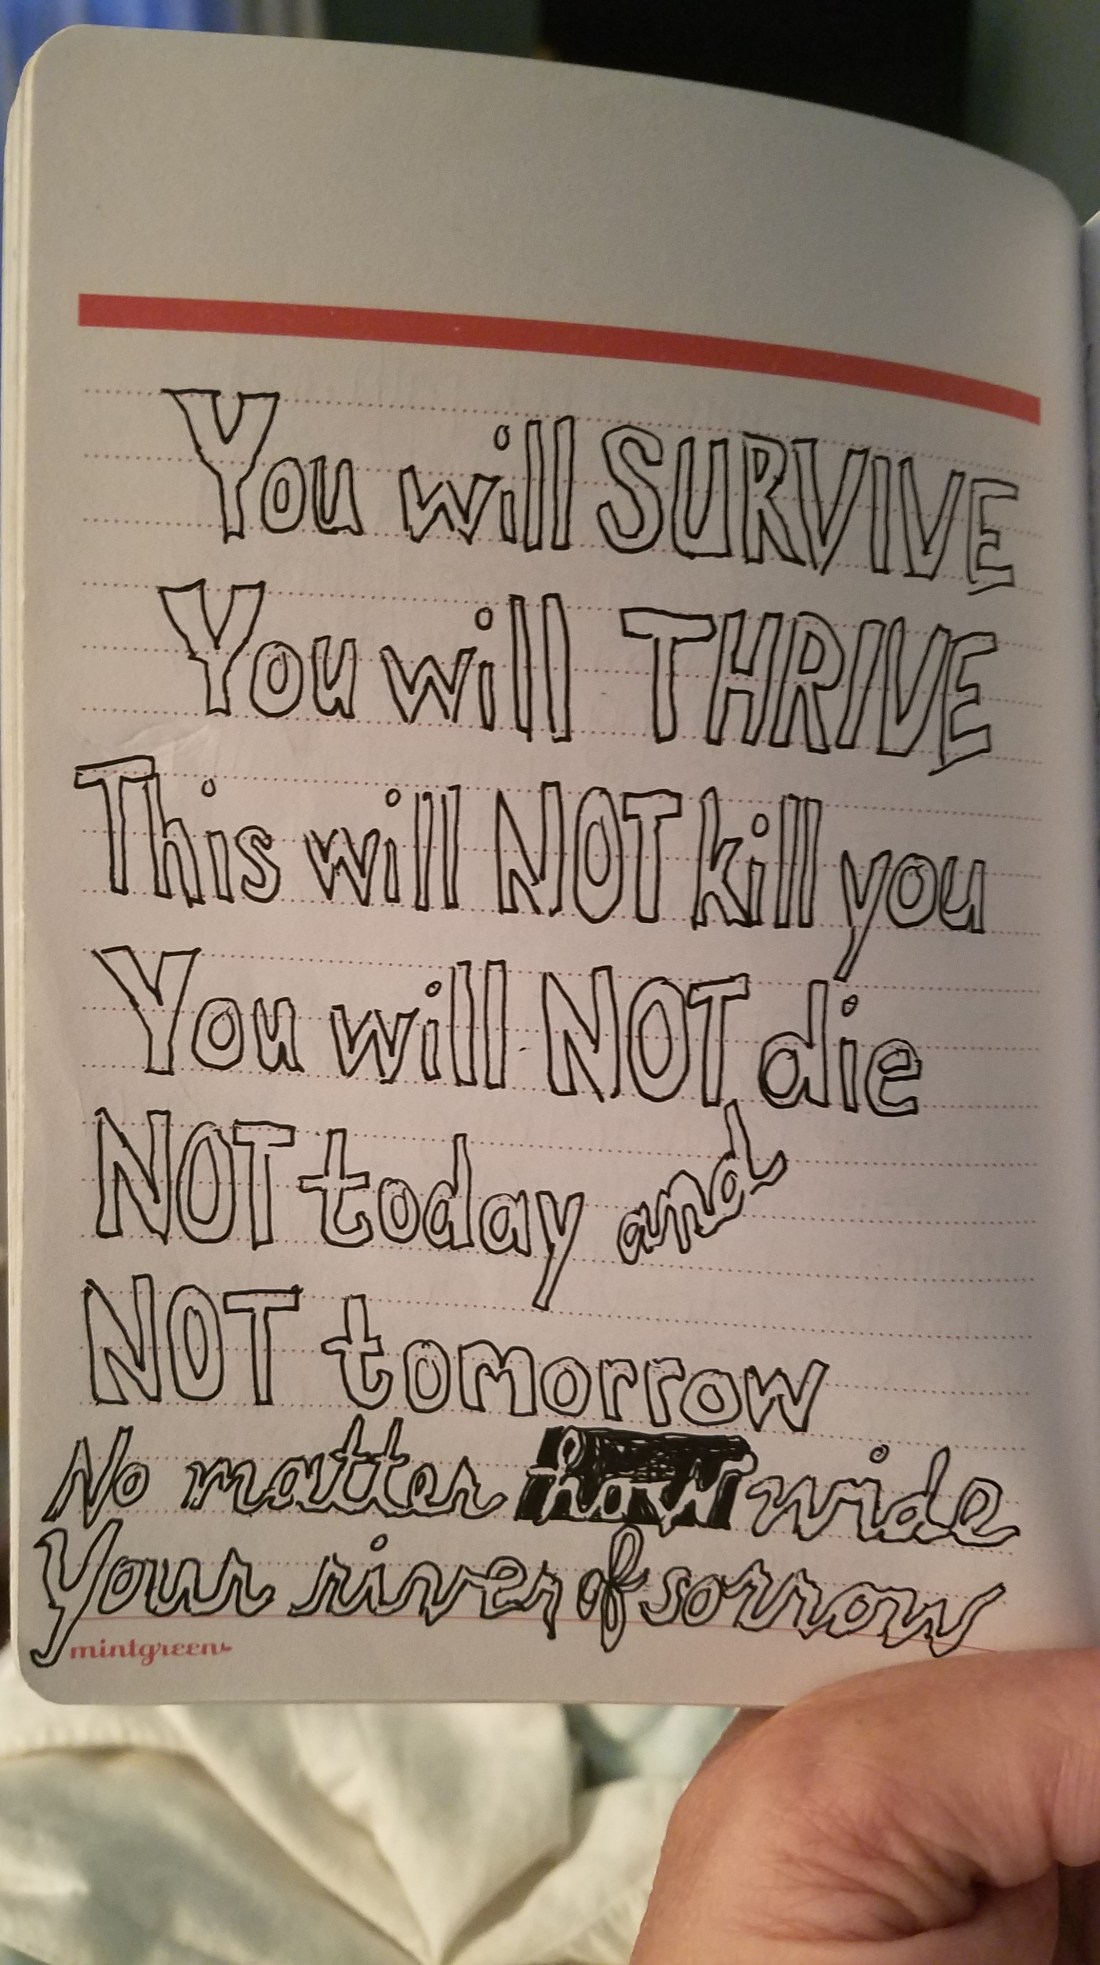 You will SURVIVE
You will THRIVE
This will NOT kill you
You will NOT die
NOT today and
NOT tomorrow
No matter how wide
Your river of sorrow
mintgreen